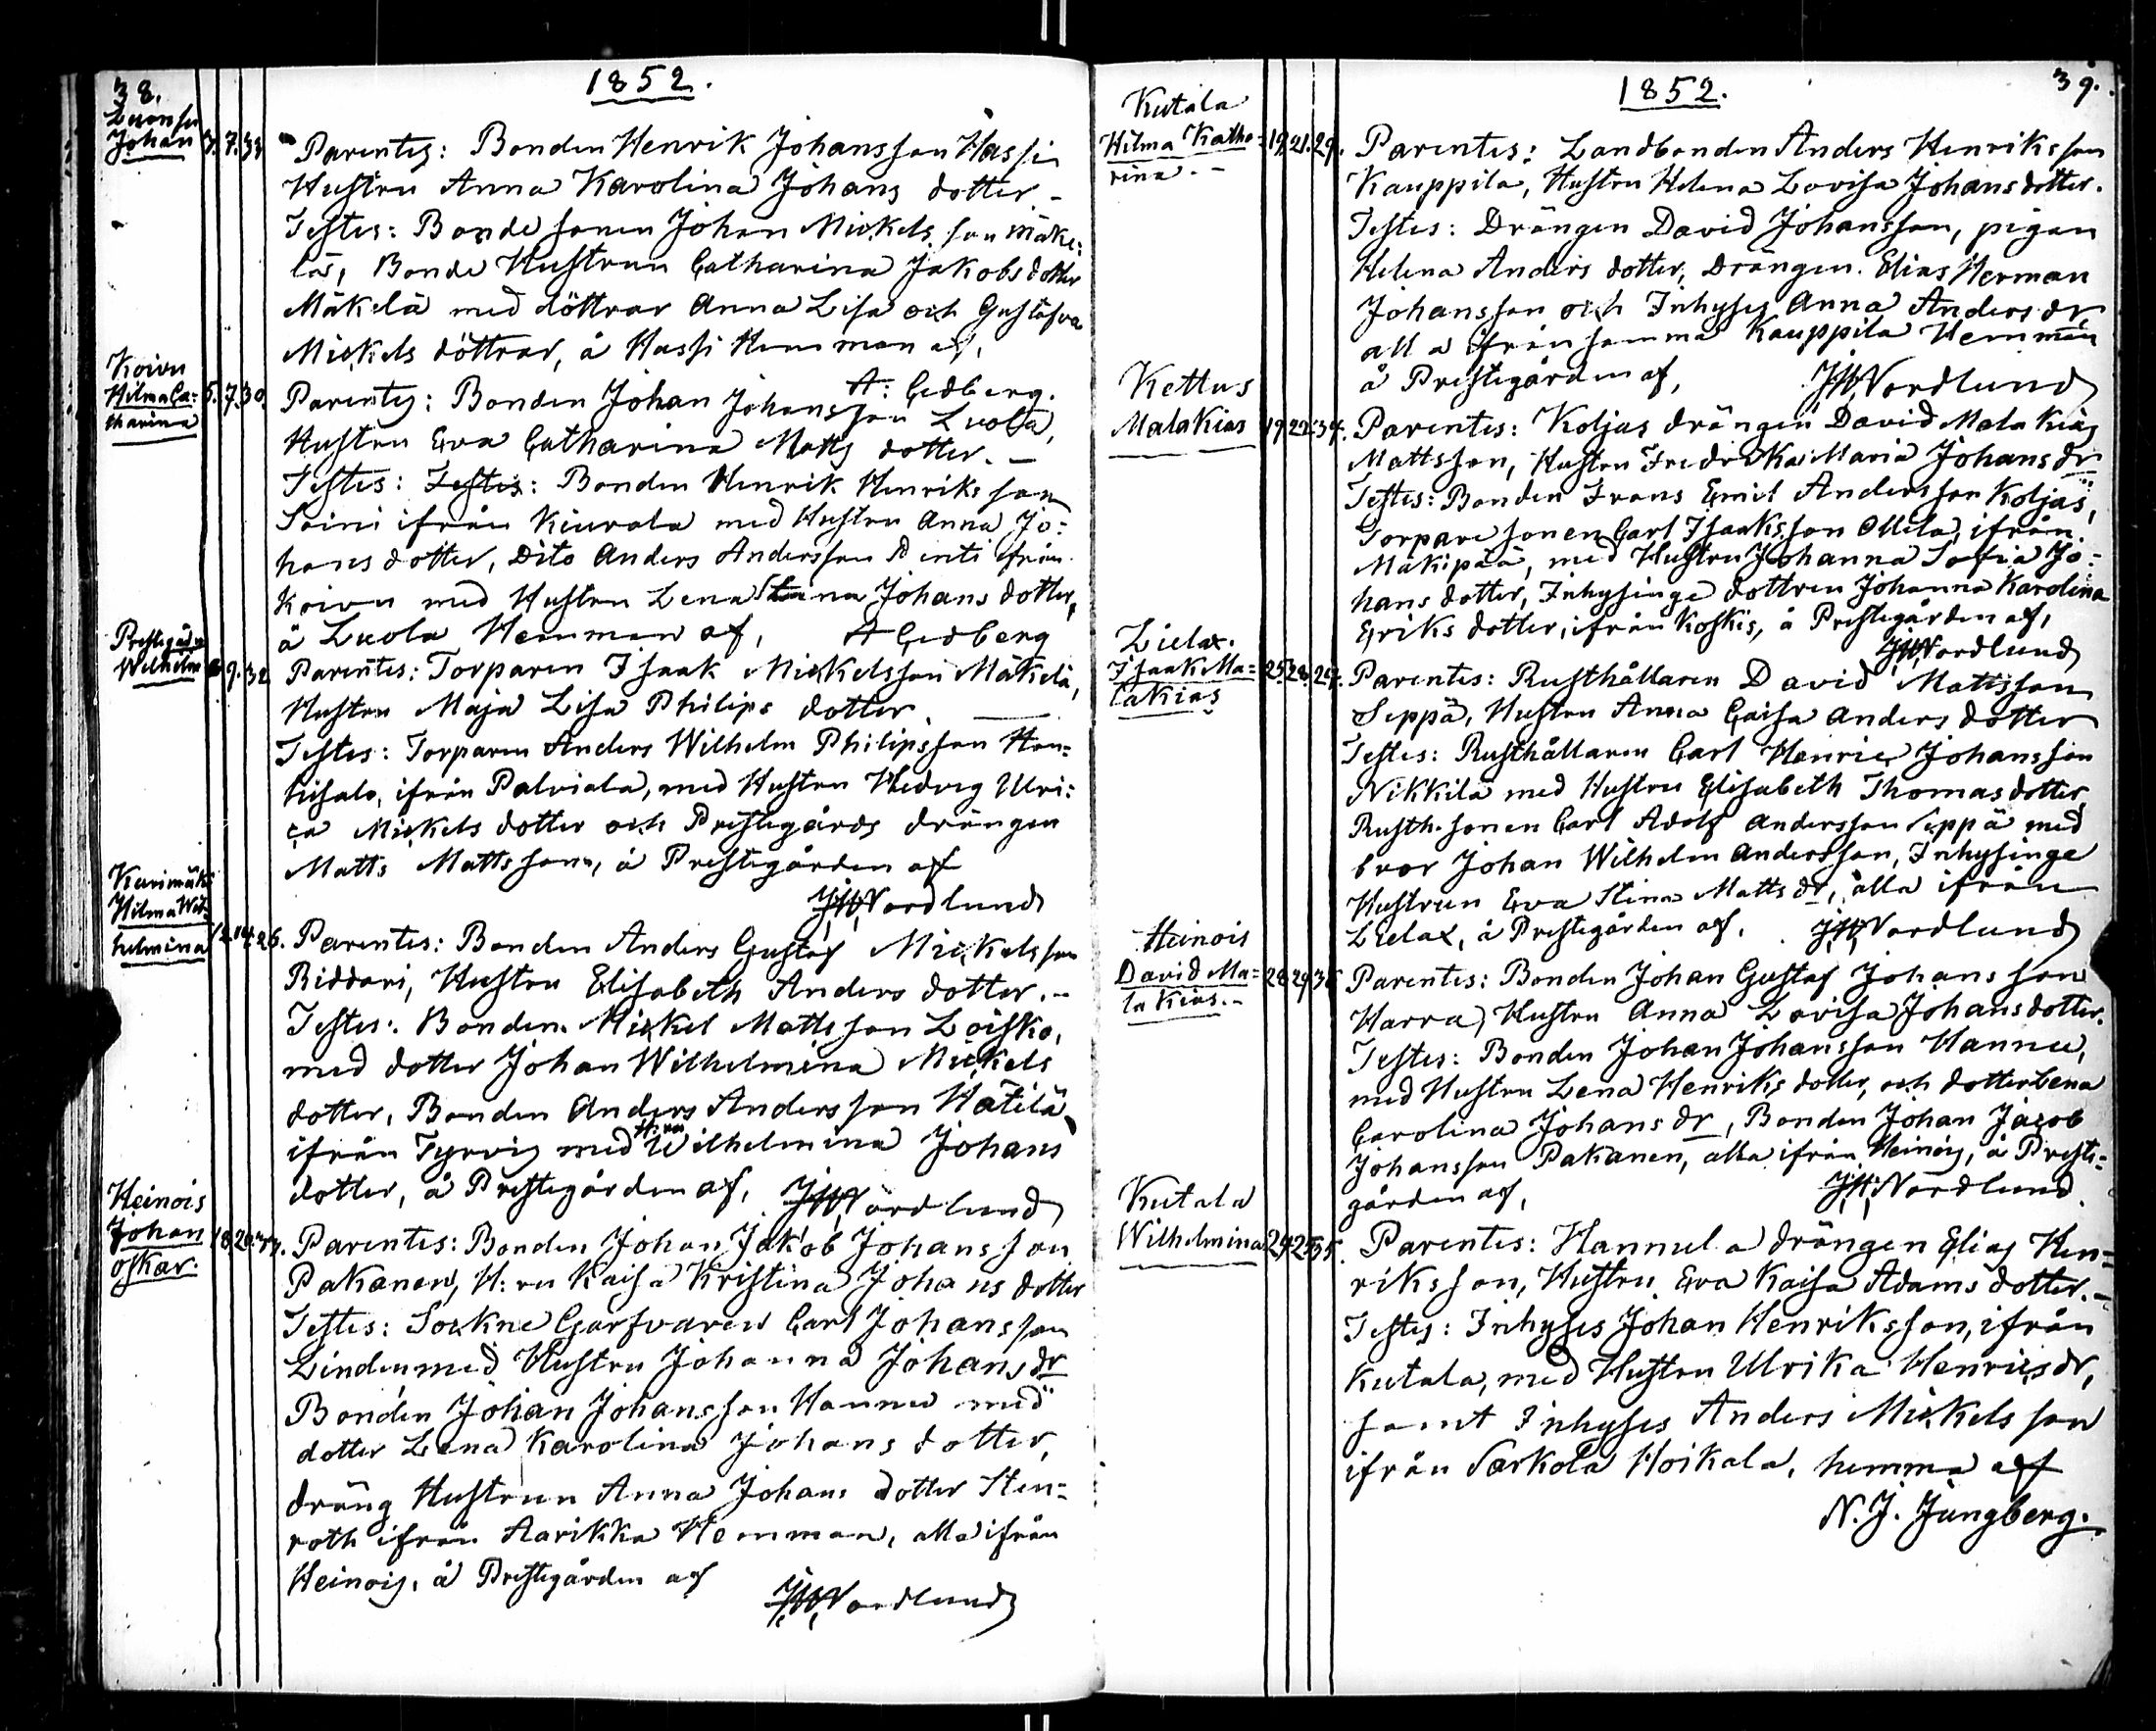 38.
1852.
Johan 5. 7. 33
Parentes: Bonden Henrik Johansson Hassi
Hustru Anna Karolina Johans dotter.-
Testes: Bonde sonen Johan Mickels son Mäke:
lä, Bonde Hustrun Catharina Jakobs dotter
Mäkelä med döttrar Anna Lisa och Gustafva
Mickels döttrar, å Hassi Hemman af,
A: Cedberg.
Koivu
Hilma Ca=
tharina 5. 7. 30.
Parentes: Bonden Johan Johansson Luola,
Hustru Eva Catharina Matts dotter.-
Testes: Testes: Bonden Henrik Henriks son
Soini ifrån Kiurala med Hustru Anna Jo:
hans dotter, Dito Anders Andersson Penti ifrån
Koivu med Hustru Lena Stina Johans dotter,
å Luola Hemman af, A Cedberg
Prestegård
Wilhelm 9. 32
Parentes: Torparen Isaak Mickelsson Mäkelä,
Hustru Maja Lisa Philips dotter.
Testes: Torparen Anders Wilhelm Philipsson Hon=
kisalo, ifrån Palviala, med Hustru Hedvig Ulri:
ca Mickels dotter och Prestegårds drängen
Matts Mattsson, å Prestegården af
JW Nordlund
Karimäki
Hilma Wil=
helmina 12. 14. 26.
Parentes: Bonden Anders Gustaf Mickelsson
Riddari, Hustru Elisabeth Anders dotter.-
Testes: Bonden Mickel Matts son Loisko,
med dotter Johan Wilhelmina Mickels
dotter, Bonden Anders Andersson Hätilä
ifrån Tyrvis med H:ru Wilhelmina Johans
dotter, å Prestegården af, JW Nordlund
Heinois
Johan
Oskar. 18. 20.
Parentes: Bonden Johan Jakob Johansson
Pakanen, H:ru Kaisa Kristina Johans dotter
Testes: Sockne Garfvaren Carl Johansson
Linden med Hustru Johanna Johans dr
Bonden Johan Johansson Hannu med
dotter Lena Karolina Johans dotter,
dräng Hustrun Anna Johans dotter Sten=
roth ifrån Aarikka Hemman, alla ifrån
Heinois, å Prestegården af
JW Nordlund
39.
1852.
Kutala
Hilma Katha=
rina.- 19. 21. 29.
Parentes: Landbonden Anders Henriksson
Kauppila, Hustru Helena Lovisa Johans dotter.
Testes: Drängen David Johansson, pigan
Helena Anders dotter, Drängen Elias Herman
Johansson och Inhyses Anna Anders dr
alla ifrån samma Kauppila Hemman
å Prestegården af, JW Nordlund
Kettus
Malakias 19. 22. 34.
Parentes: Koljas drängen David Malakias
Mattsson, Hustru Fredrika Maria Johans dr
Testes: Bonden Frans Emil Andersson Koljas,
Torpare sonen Carl Isaaksson Ollila, ifrån
Mäkipää, med Hustru Johanna Sofia Jo:
hans dotter, Inhysinge dottren Johanna Karolina
Eriks dotter, ifrån Koskis, å Prestegården af,
JW Nordlund
Lielax.
Isaak Ma=
lakias 25. 28. 27.
Parentes: Rusthållaren David Mattsson
Seppä, Hustru Anna Caisa Anders dotter
Testes: Rusthållaren Carl Henric Johansson
Nikkilä med Hustru Elisabeth Thomas dotter,
Rusth. sonen Carl Adolf Andersson Seppä med
bror Johan Wilhelm Andersson, Inhysinge
Hustrun Eva Stina Matts dr, alla ifrån
Lielax, å Prestegården af. JW Nordlund
Heinois
David Ma=
lakias.- 28. 29. 35
Parentes: Bonden Johan Gustaf Johansson
Harra, Hustru Anna Lovisa Johans dotter.
Testes: Bonden Johan Johansson Hannu,
med Hustru Lena Henriks dotter, och dotter Lena
Carolina Johans dr, Bonden Johan Jacob
Johansson Pakanen, alla ifrån Heinois, å Preste=
gården af, JW Nordlund.
Kutala
Wilhelmina 24. 25. 35.
Parentes: Hannula drängen Elias Hen=
riksson, Hustru Eva Kaisa Adams dotter.-
Testes: Inhyses Johan Henriksson, ifrån
Kutala, med Hustru Ulrika Henrics dr,
samt Inhyses Anders Mickelsson
ifrån Sarkola Hoikala, hemma af
N. J. Jungberg.